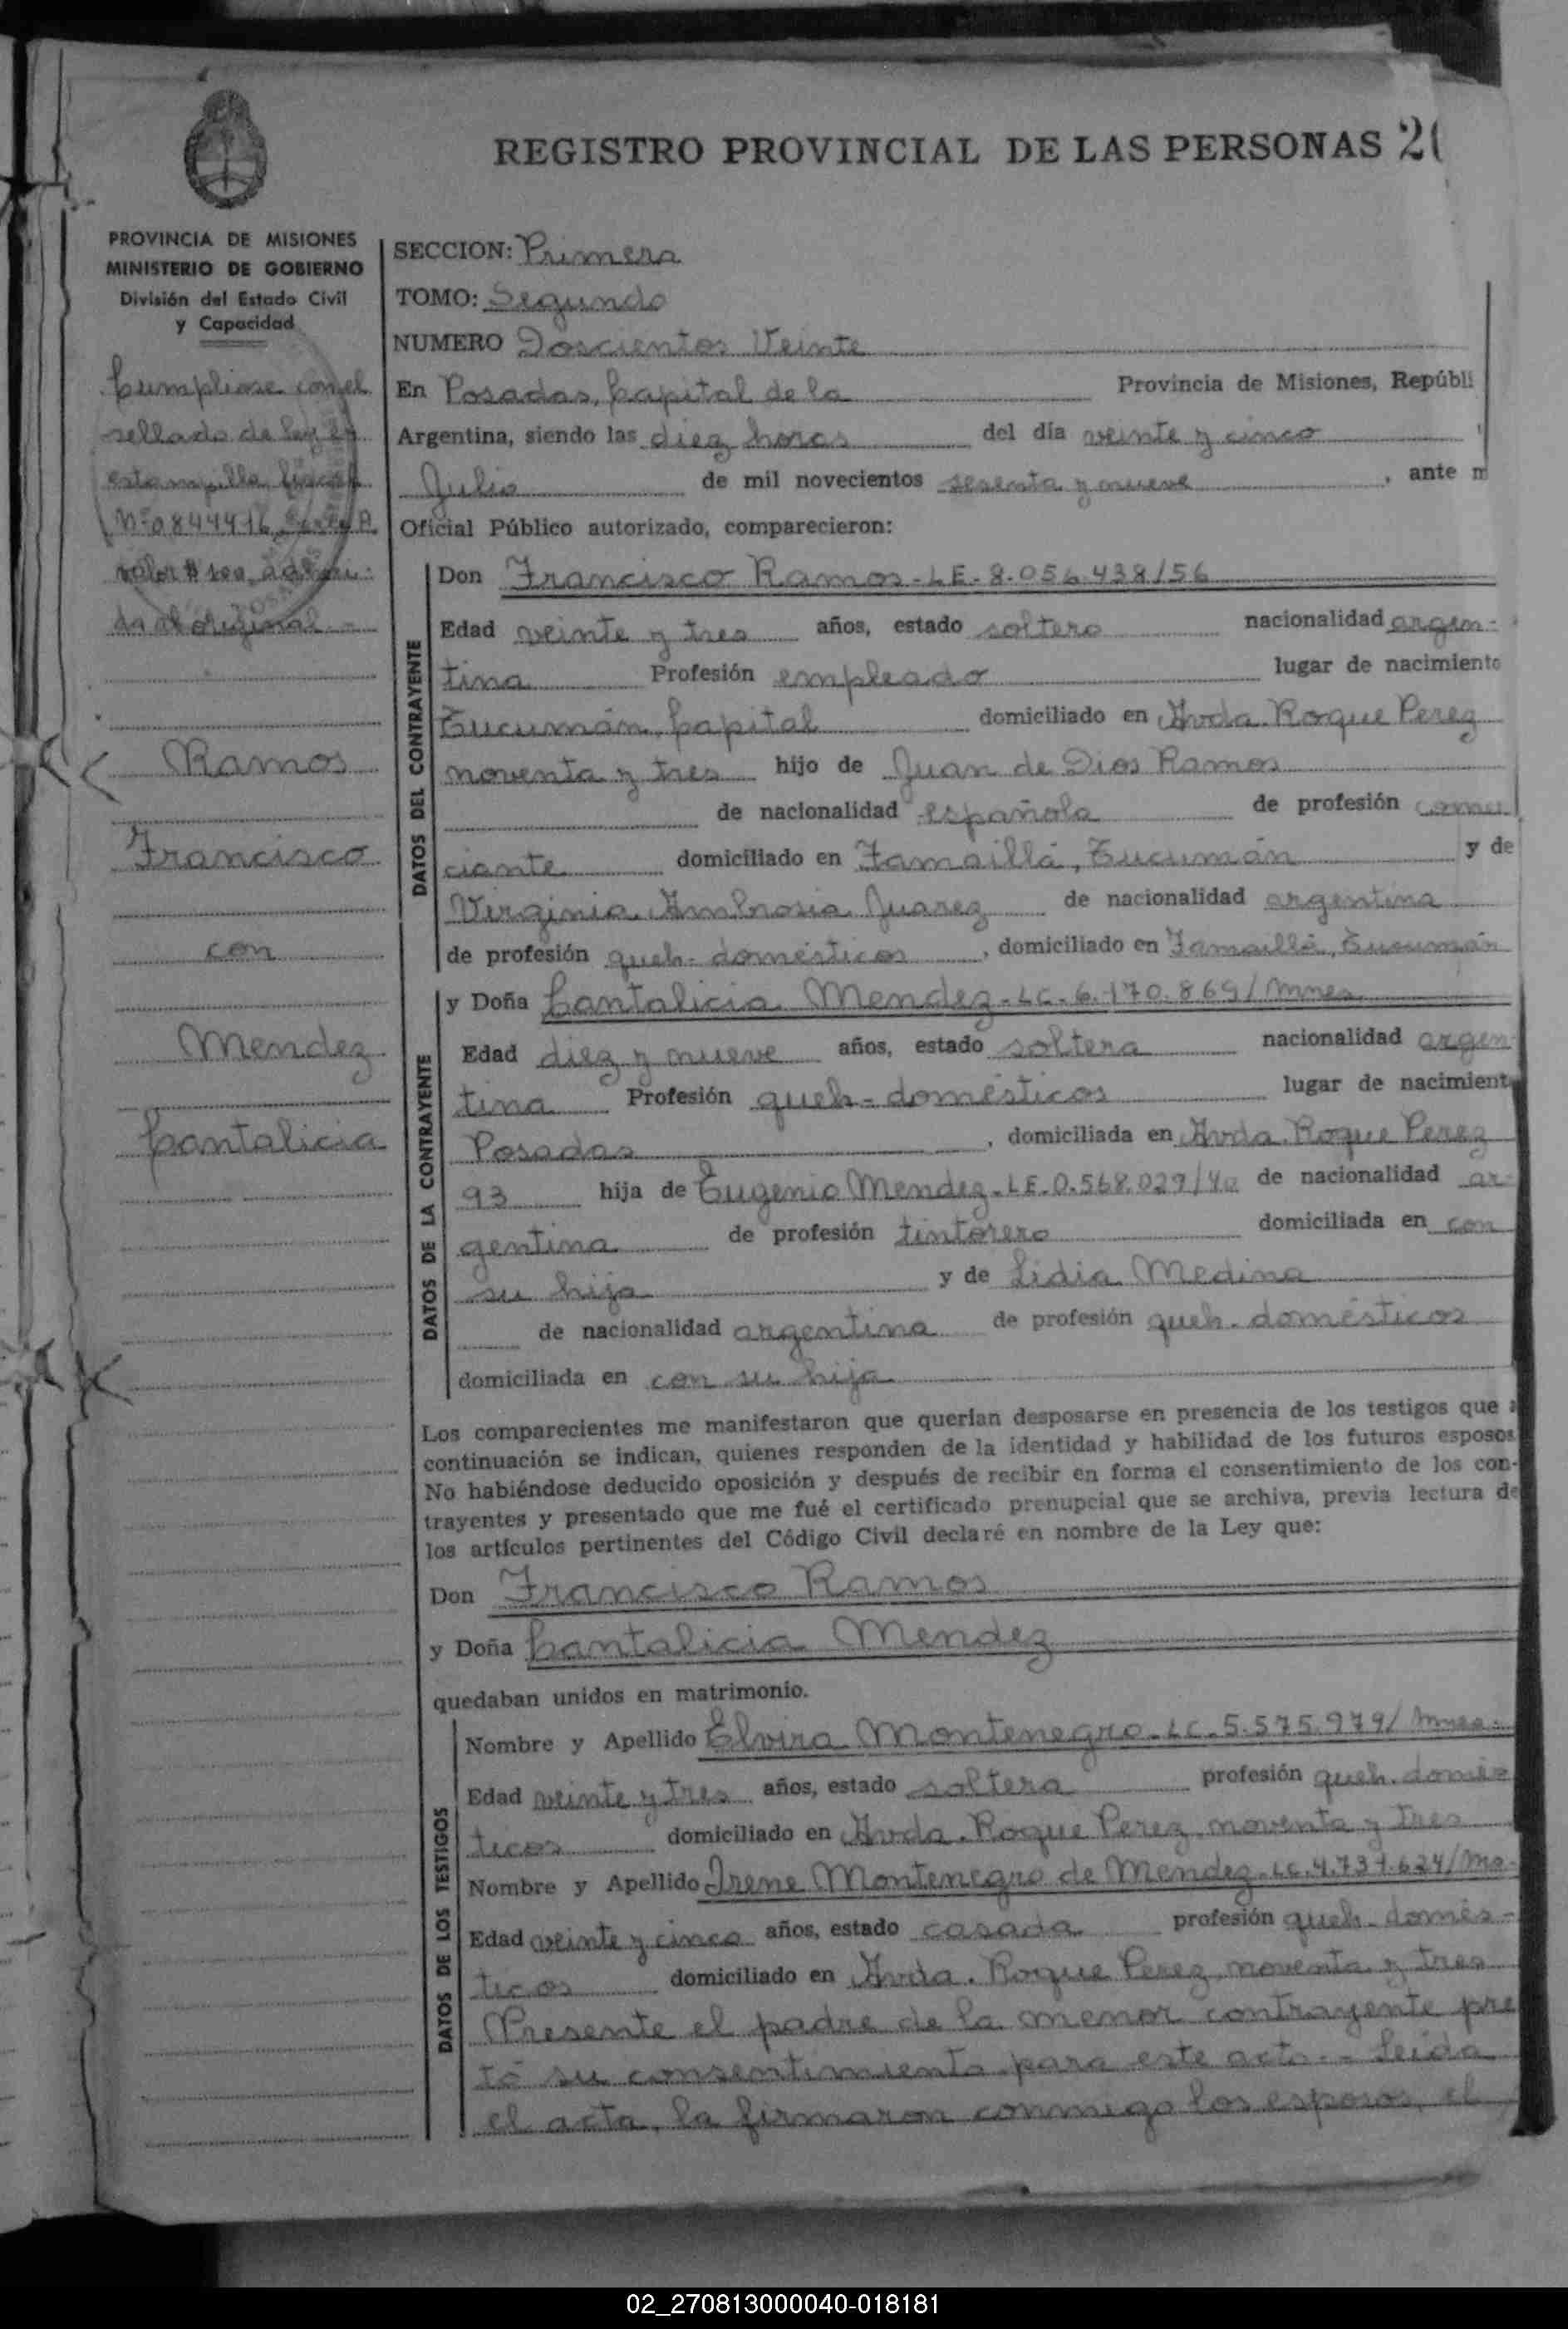 REGISTRO PROVINCIAL DE LAS PERSONAS 2
PROVINCIA DE MISIONES
MINISTERIO DE GOBIERNO
División del Estado Civil
y Capacidad
Cumpliose con el
sellado de ley
estampilla fiscal
Nº0844416 Serie A
valor $ 100, adheri-
da al original -
Ramos
Francisco
con
Mendez
Cantalicia
SECCION: Primera
TOMO: Segundo
NUMERO Doscientos Veinte
En Posadas, Capital de la Provincia de Misiones, Repúbli
Argentina, siendo las diez horas del día veinte y cinco
Julio de mil novecientos sesenta y nueve, ante m
Oficial Público autorizado, comparecieron:
DATOS DEL CONTRAYENTE
Don Francisco Ramos - LE - 8.056.438/56
Edad veinte y tres años, estado soltero nacionalidad argen-
tina Profesión empleado lugar de nacimiento
Tucumán, Capital domiciliado en Avda. Roque Perez
noventa y tres hijo de Juan de Dios Ramos
de nacionalidad española de profesión comer
ciante domiciliado en Famaillá, Tucumán y de
Virginia Ambrosia Juarez de nacionalidad argentina
de profesión queh- domésticos, domiciliado en Famaillá, Tucumán
DATOS DE LA CONTRAYENTE
y Doña Cantalicia Mendez - LC - 6.170.869/Mnes
Edad diez y nueve años, estado soltera nacionalidad argen
tina Profesión queh - domésticos lugar de nacimient
Posadas, domiciliada en Avda. Roque Perez
93 hija de Eugenio Mendez - LE. 0.568.029/40 de nacionalidad ar-
gentina de profesión tintorero domiciliada en con
su hija y de Lidia Medina
de nacionalidad argentina de profesión queh. domésticos
domiciliada en con su hija
Los comparecientes me manifestaron que querían desposarse en presencia de los testigos que a
continuación se indican, quienes responden de la identidad y habilidad de los futuros esposos
No habiéndose deducido oposición y después de recibir en forma el consentimiento de los con-
trayentes y presentado que me fué el certificado prenupcial que se archiva, previa lectura de
los artículos pertinentes del Código Civil declaré en nombre de la Ley que:
Don Francisco Ramos
y Doña Cantalicia Mendez
quedaban unidos en matrimonio.
DATOS DE LOS TESTIGOS
Nombre y Apellido Elvira Montenegro - LC. 5.575.979/Mnes-
Edad veinte y tres años, estado soltera profesión queh. domés
ticos domiciliado en Avda. Roque Perez noventa y tres
Nombre y Apellido Irene Montenegro de Mendez - LC. 4.731.624/Mo-
Edad veinte y cinco años, estado casada profesión queh. domés-
ticos domiciliado en Avda. Roque Perez noventa y tres
Presente el padre de la menor contrayente pre
tó su consentimiento para este acto. - Leída
el acta, la firmaron conmigo los esposos, el
02_270813000040-018181